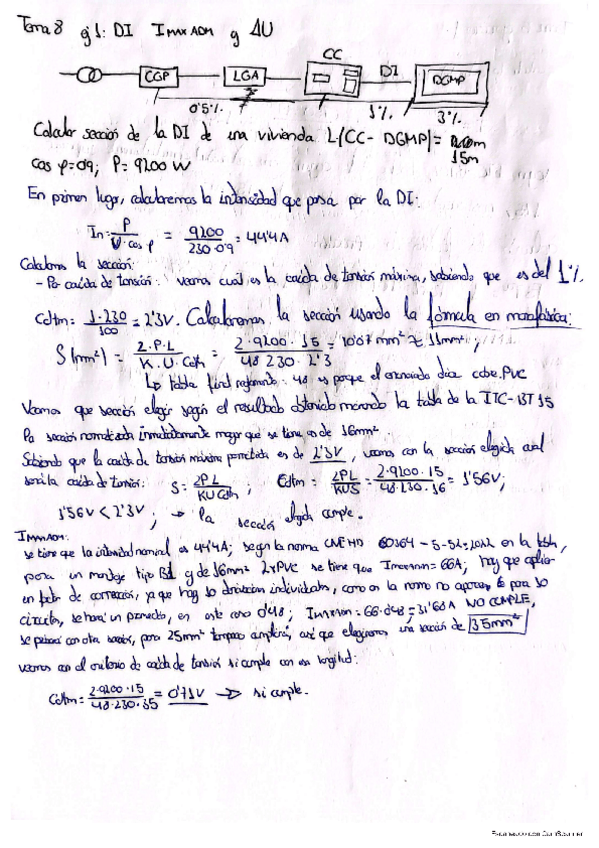 Tema 8 ej 1: DI IMAXADM y ΔU
CC
CGP LGA DI DGMP
0'5%. 1%. 3%.
Calcular sección de la DI de una vivienda L(CC- DGMP)= 15m
cos φ=0'9; P= 9200 W
En primer lugar, calcularemos la intensidad que pasa por la DI:
In: P/(V·cos φ) = 9200/(230·0'9) = 44'4A
Calculamos la sección:
- Por caída de tensión: veamos cual es la caída de tensión máxima, sabiendo que es del 1%.
Cdtm= 1·230/100 = 2'3V. Calcularemos la sección usando la fórmula en monofásica:
S(mm²) = 2·P·L/(K·U·Cdtm) = 2·9200·15/(48·230·2'3) = 10'87 mm² ≈ 11mm²;
↳ tabla final reglamento: 48 es porque el enunciado dice cobre.PVC
Veamos que sección elegir según el resultado obtenido mirando la tabla de la ITC-BT 15
La sección normalizada inmediatamente mayor que se tiene es de 16mm²
Sabiendo que la caída de tensión máxima permitida es de 2'3V, veamos con la sección elegida cual
será la caída de tensión: S= 2PL/(KUCdtm); Cdtm= 2PL/(KUS) = 2·9200·15/(48·230·16) = 1'56V;
1'56V < 2'3V; → La sección elegida cumple.
IMAXADM:
se tiene que la intensidad nominal es 44'4A; según la norma UNE HD 60364-5-52:2022 en la tabla,
para un montaje tipo B1 y de 16mm² 2xPVC se tiene que Imaxadm= 66A; hay que aplicar
un factor de corrección, ya que hay 30 derivaciones individuales, como en la norma no aparece para 30
circuitos, se hará un promedio, en este caso 0'48; Imaxadm= 66·0'48= 31'68A NO CUMPLE,
se probará con otra sección, para 25mm² tampoco cumpliría, así que elegiremos una sección de 35mm²
veamos con el criterio de caída de tensión si cumple con esa longitud:
Cdtm= 2·9200·15/(48·230·35) = 0'71V → si cumple.